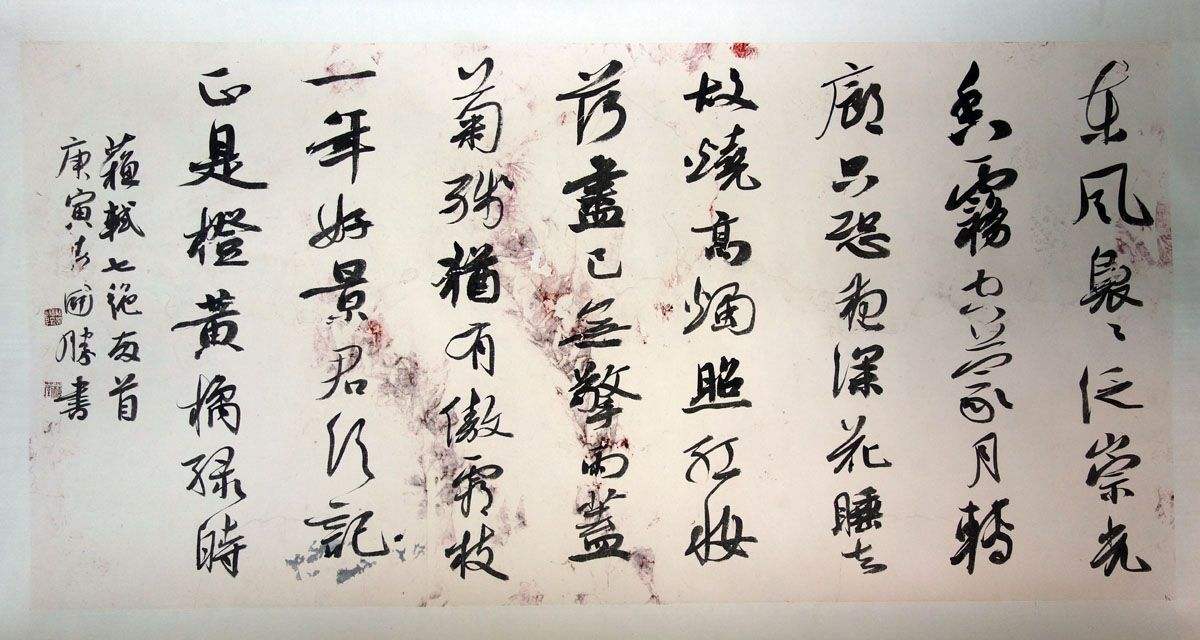 東風裊〻泛崇光
香霧空蒙月轉
廊只恐夜深花睡去
故燒高燭照紅妝
荷盡已無擎雨蓋
菊殘猶有傲霜枝
一年好景君須記
正是橙黃橘綠時
蘇軾七絕两首
庚寅春國勝書